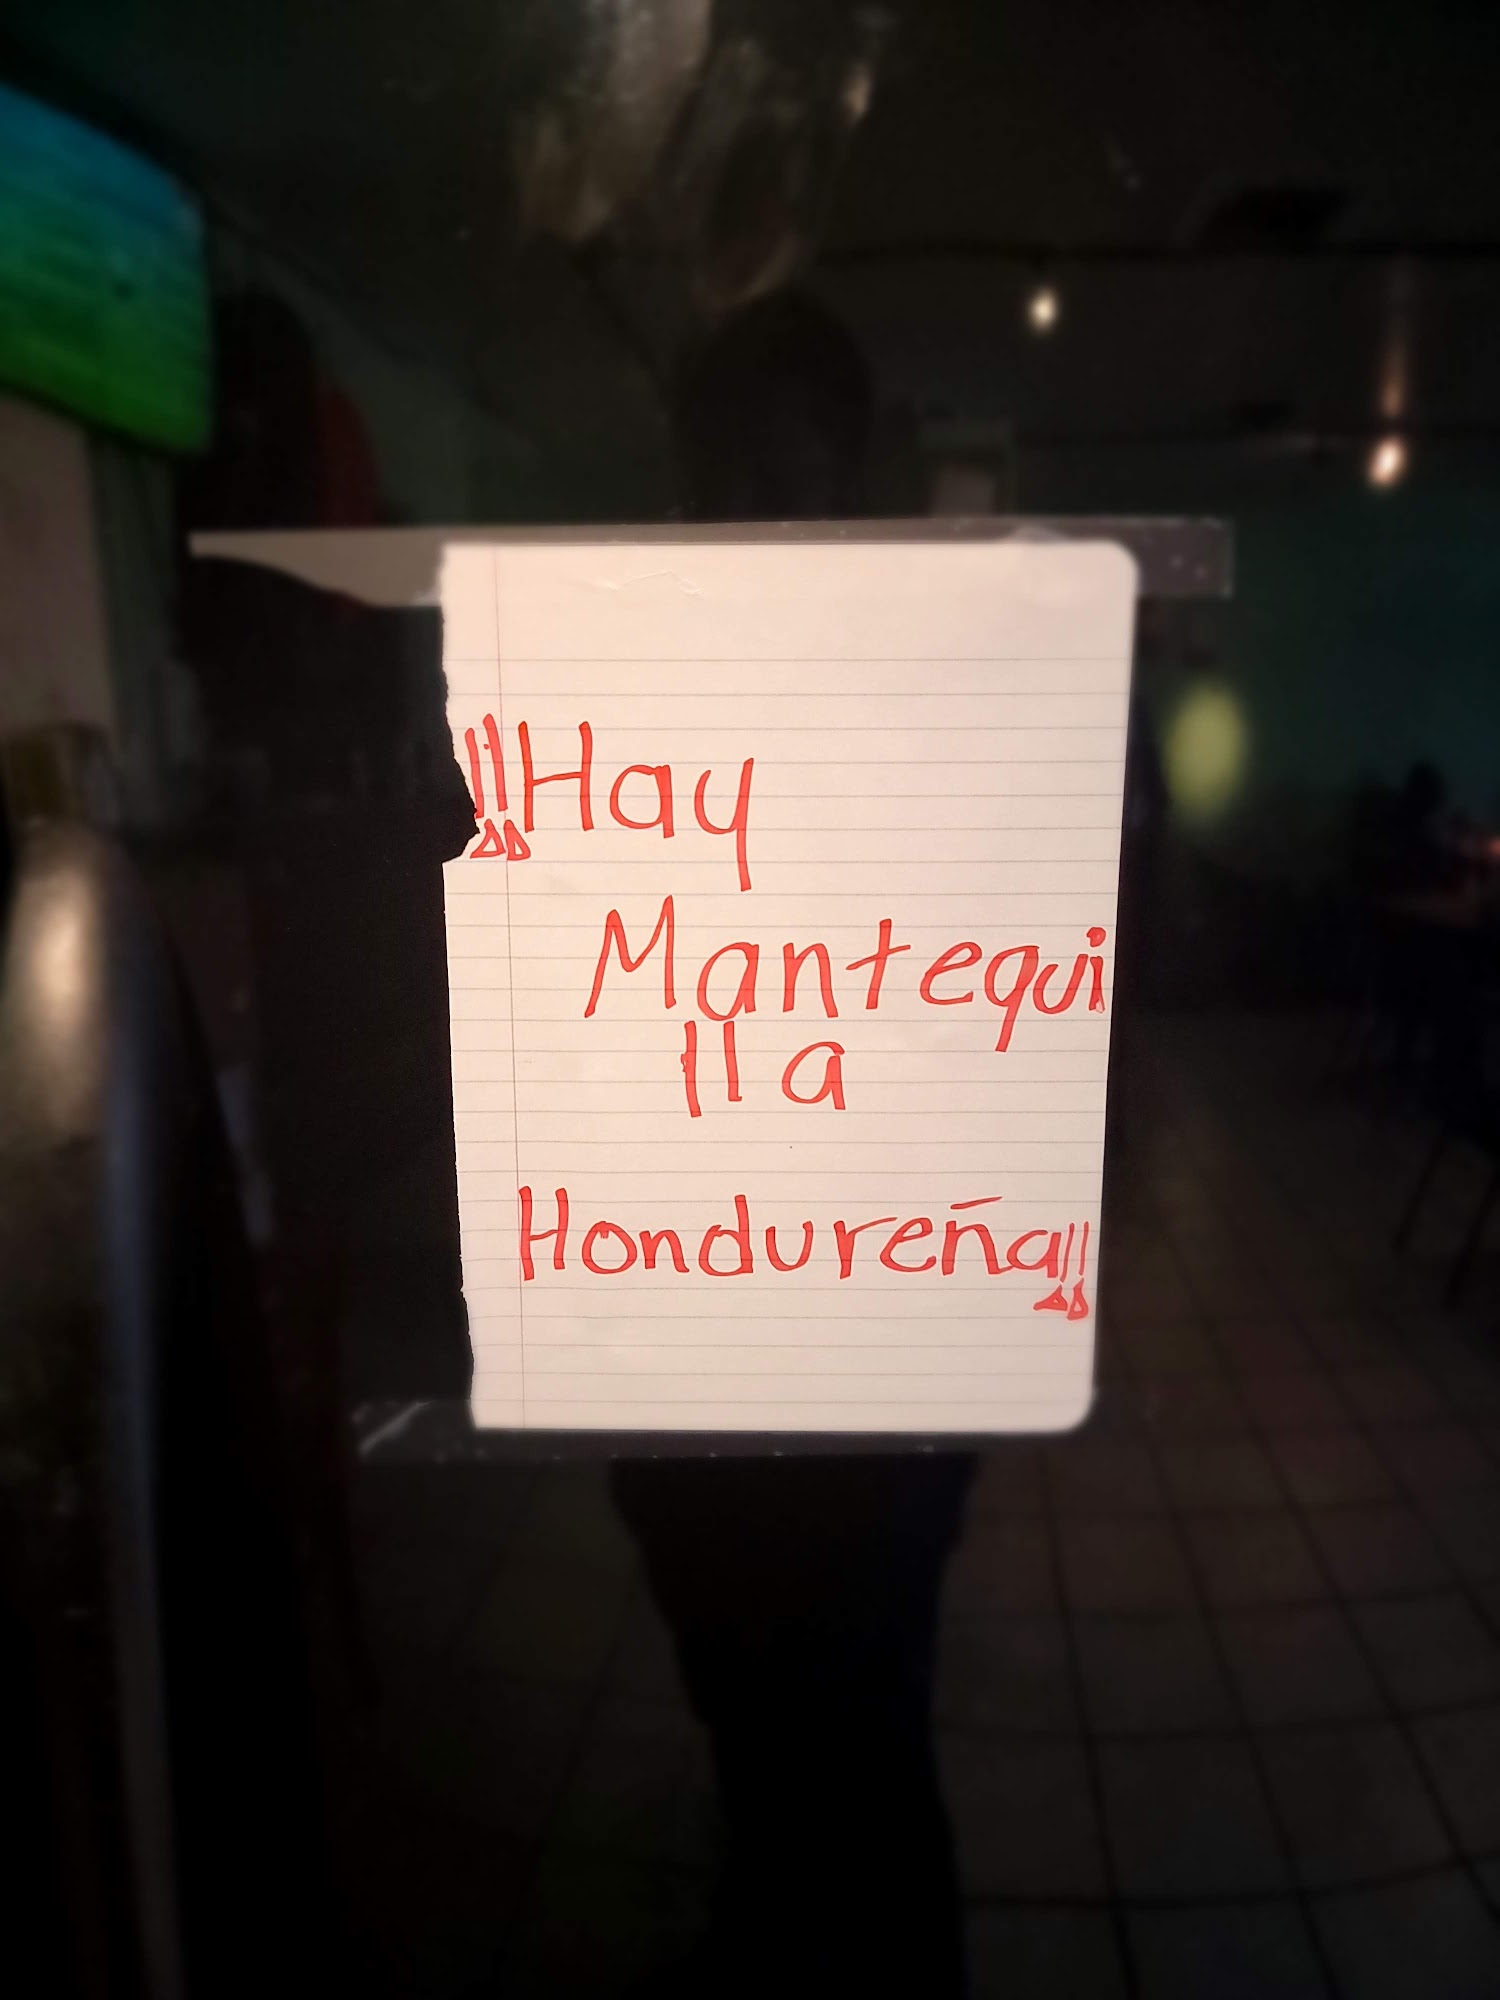 !!Hay
Mantequi
lla
Hondureña!!